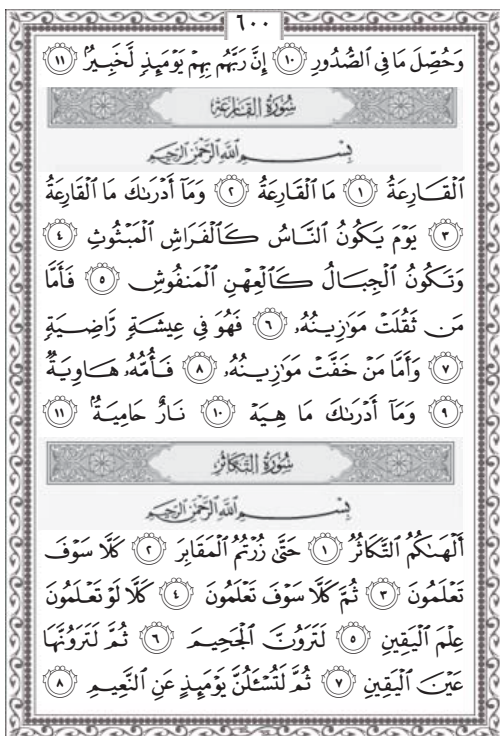 ٦٠٠
وَحُصِّلَ مَا فِي ٱلصُّدُورِ ١٠ إِنَّ رَبَّهُم بِهِمْ يَوْمَئِذٍ لَّخَبِيرٌۢ ١١
سُورَةُ القَارِعَةِ
بِسْمِ ٱللَّهِ ٱلرَّحْمَٰنِ ٱلرَّحِيمِ
ٱلْقَارِعَةُ ١ مَا ٱلْقَارِعَةُ ٢ وَمَآ أَدْرَىٰكَ مَا ٱلْقَارِعَةُ
٣ يَوْمَ يَكُونُ ٱلنَّاسُ كَٱلْفَرَاشِ ٱلْمَبْثُوثِ ٤
وَتَكُونُ ٱلْجِبَالُ كَٱلْعِهْنِ ٱلْمَنفُوشِ ٥ فَأَمَّا
مَن ثَقُلَتْ مَوَٰزِينُهُۥ ٦ فَهُوَ فِي عِيشَةٍ رَّاضِيَةٍ
٧ وَأَمَّا مَنْ خَفَّتْ مَوَٰزِينُهُۥ ٨ فَأُمُّهُۥ هَاوِيَةٌ
٩ وَمَآ أَدْرَىٰكَ مَا هِيَهْ ١٠ نَارٌ حَامِيَةٌۢ ١١
سُورَةُ التَّكَاثُرِ
بِسْمِ ٱللَّهِ ٱلرَّحْمَٰنِ ٱلرَّحِيمِ
أَلْهَىٰكُمُ ٱلتَّكَاثُرُ ١ حَتَّىٰ زُرْتُمُ ٱلْمَقَابِرَ ٢ كَلَّا سَوْفَ
تَعْلَمُونَ ٣ ثُمَّ كَلَّا سَوْفَ تَعْلَمُونَ ٤ كَلَّا لَوْ تَعْلَمُونَ
عِلْمَ ٱلْيَقِينِ ٥ لَتَرَوُنَّ ٱلْجَحِيمَ ٦ ثُمَّ لَتَرَوُنَّهَا
عَيْنَ ٱلْيَقِينِ ٧ ثُمَّ لَتُسْـَٔلُنَّ يَوْمَئِذٍ عَنِ ٱلنَّعِيمِ ٨